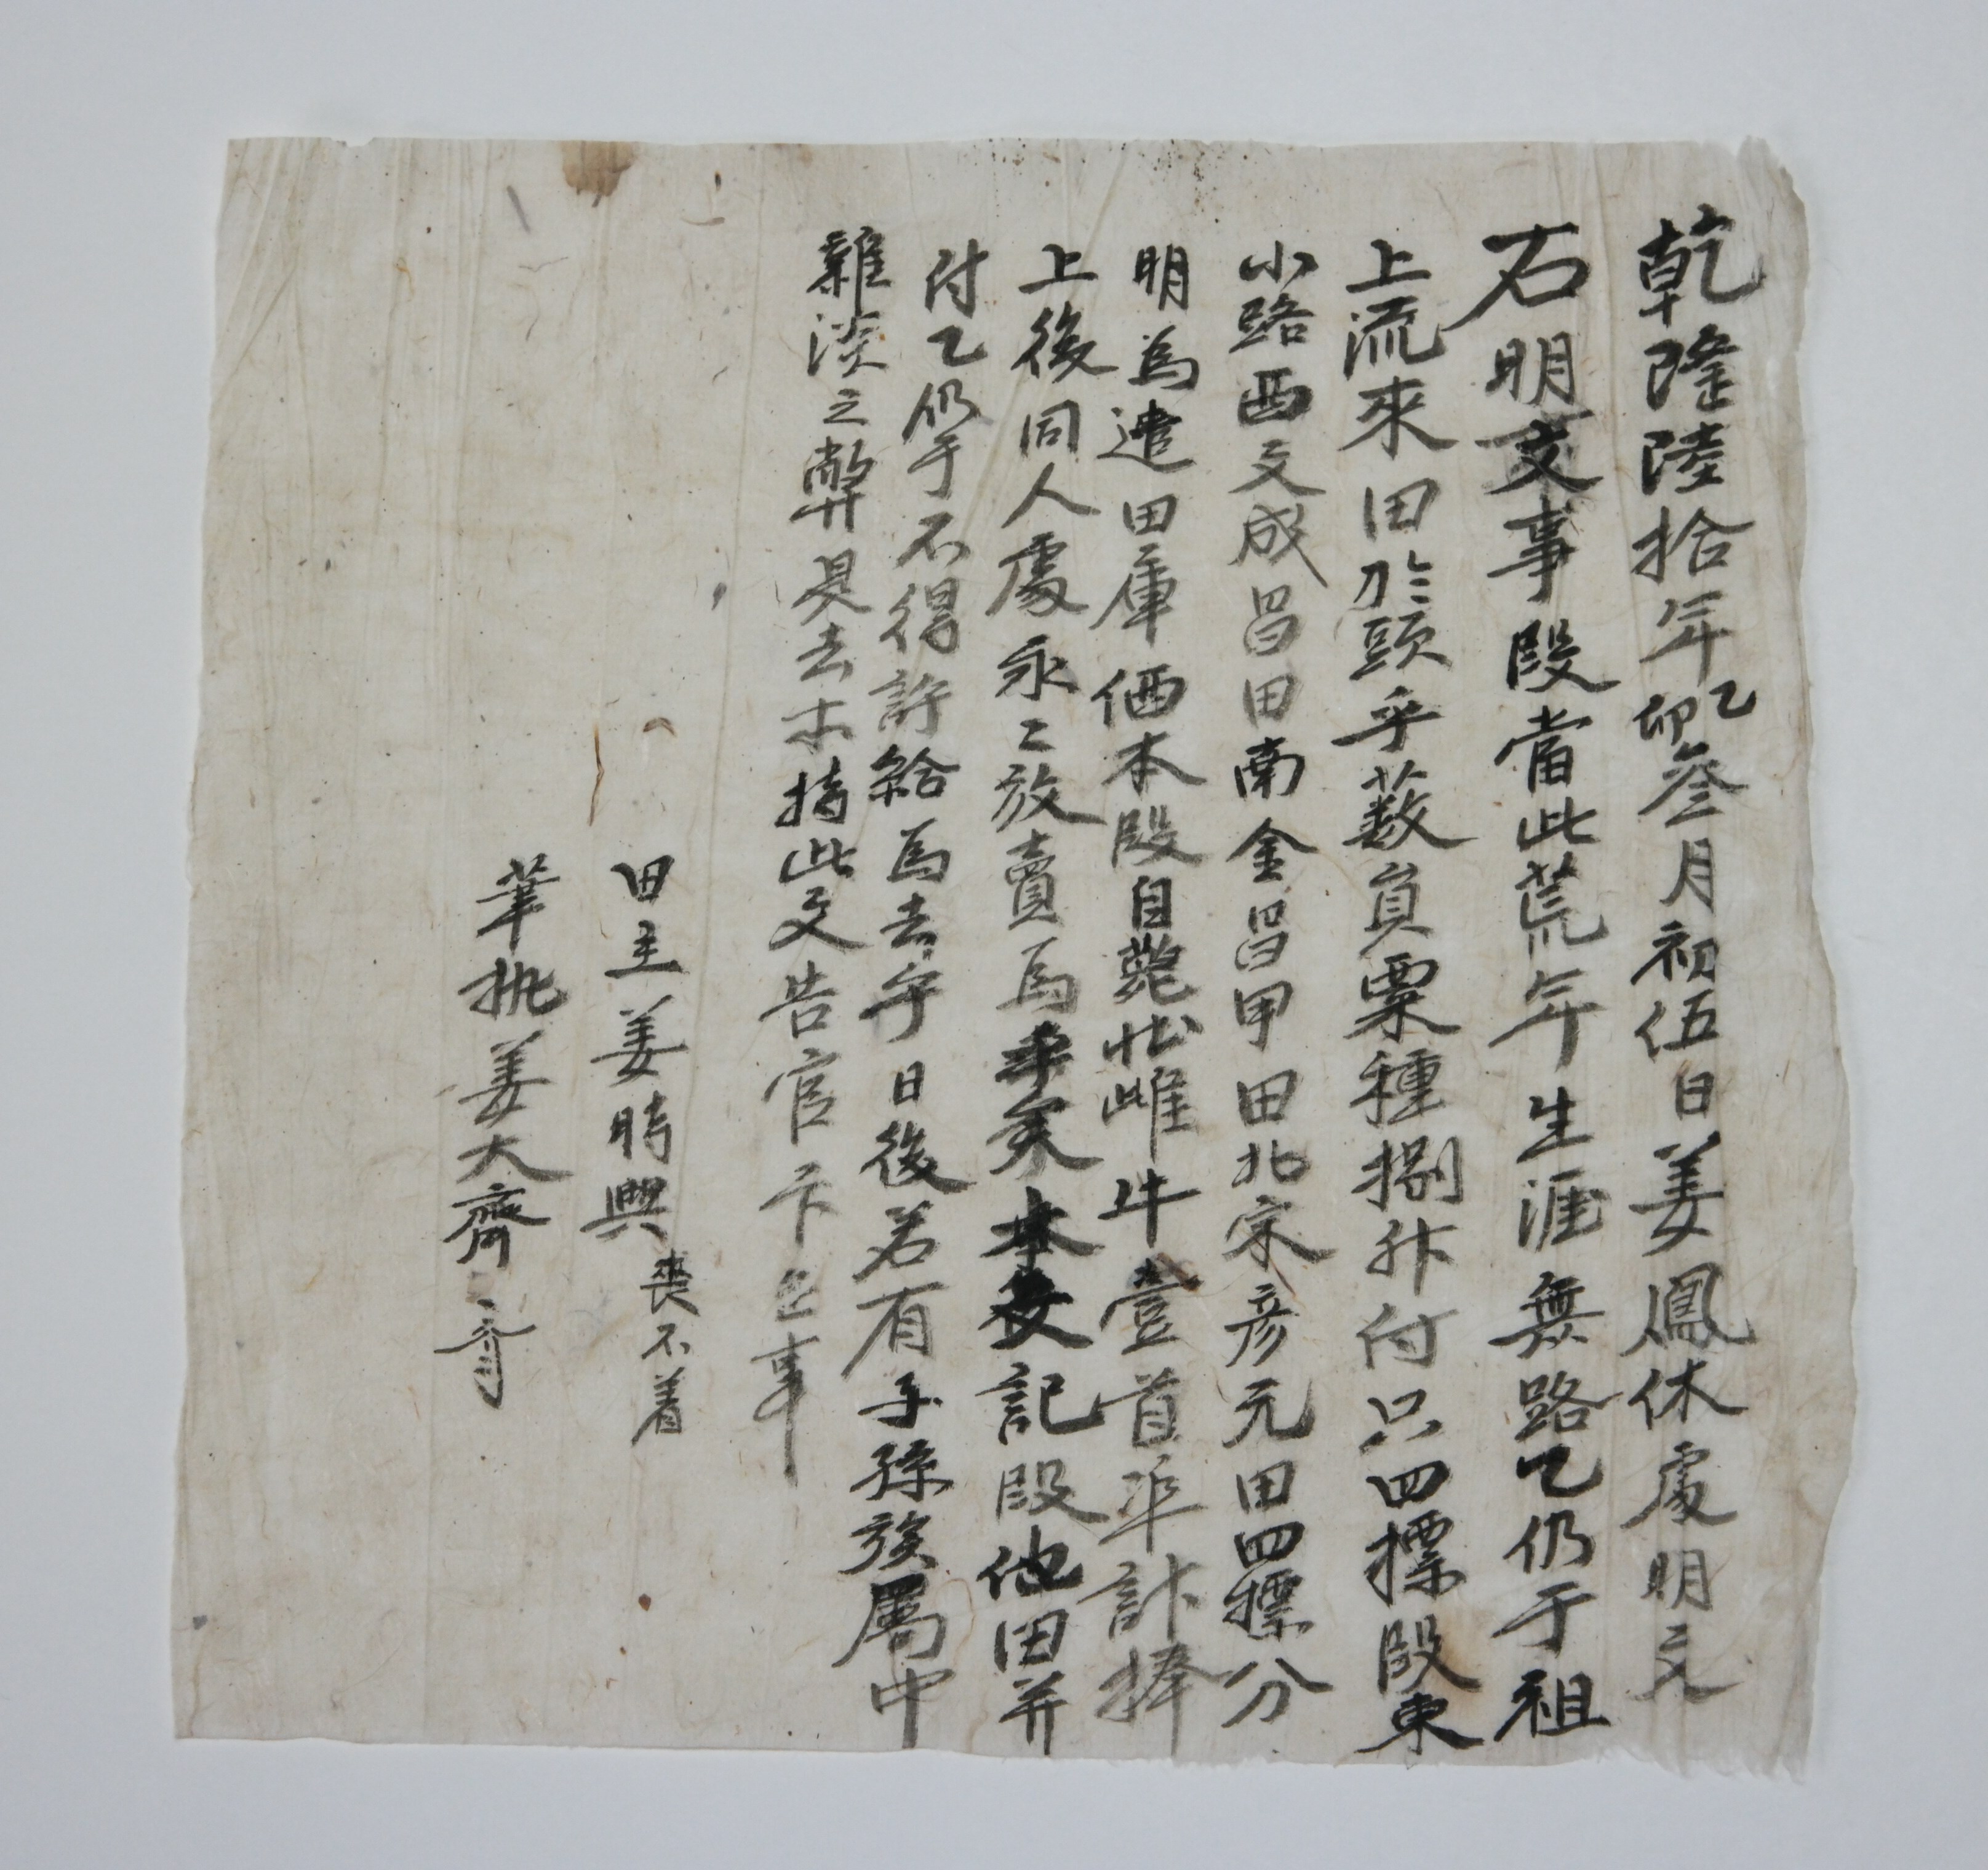 乾隆陸拾年乙卯叄月初伍日姜鳳休處明文
右明文事段當此荒年生涯無路乙仍于祖
上流來田於頭乎藪員粟種捌升付只四標段東
小路西文成昌田南金昌甲田北宋彦元田四標分
明爲遣田庫価本段自雌牛壹首準計捧
上後同人處永々放賣爲乎矣本文記段他田并
付乙仍于不得許給爲去乎日後若有子孫族属中
雜淡之弊是去木持此文告官卞正事
田主姜時興喪不着
筆執姜大齊